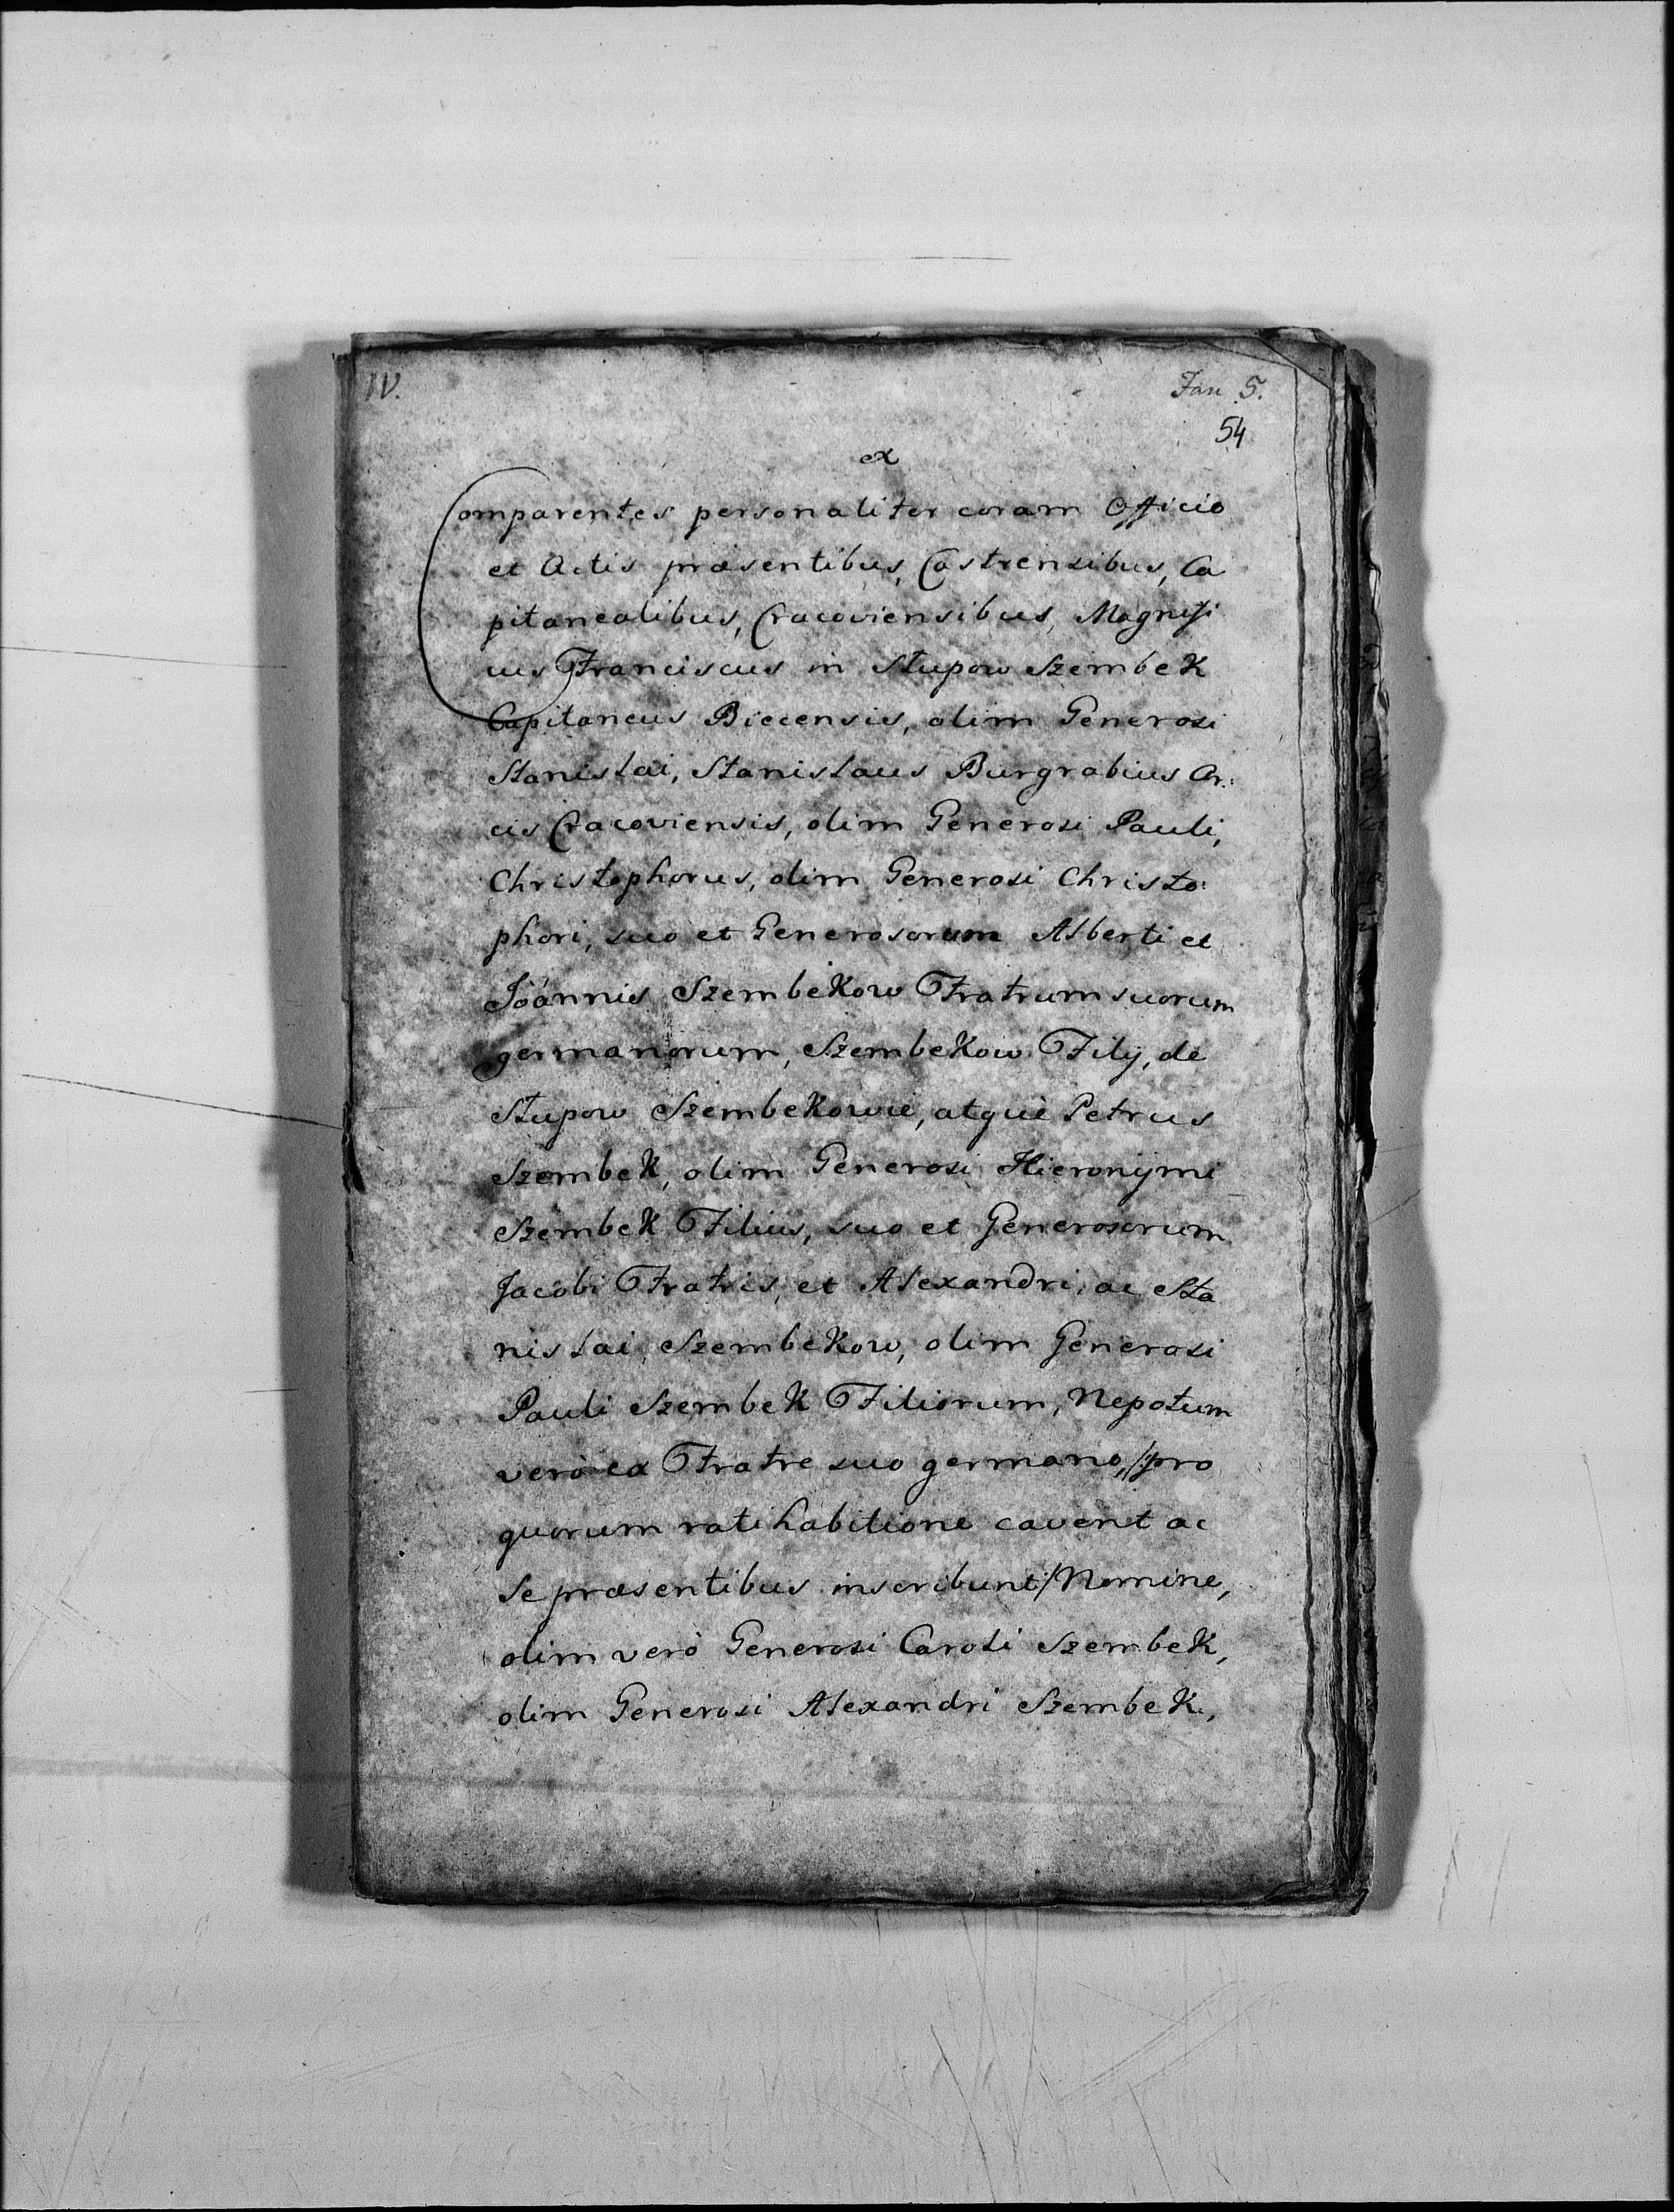 IV.
Fan 5.
54
ex
Comparentes personaliter coram Officio
et Actis præsentibus, Castrensibus, Ca
pitanealibus, Cracoviensibus, Magnifi
cus Franciscus in Słupow Szembek
Capitaneus Biecensis, olim Generosi
Stanislai, Stanislaus Burgrabius Ar:
cis Cracoviensis, olim Generosi Pauli,
Christophorus, olim Generosi Christo:
phori, suo et Generosorum Alberti et
Joannis Szembekow Fratrum suorum
germanorum, Szembekow Filij, de
Słupow Szembekowie, atque Petrus
Szembek, olim Generosi Hieronymi
Szembek Filius, suo et Generosorum
Jacobi Fratris, et Alexandri, ac Sta
nislai, Szembekow, olim Generosi
Pauli Szembek Filiorum, Nepotum
verò ex Fratre suo germano, /:pro
quorum ratihabitione cavent ac
se præsentibus inscribunt:/ Nomine,
olim verò Generosi Caroli Szembek,
olim Generosi Alexandri Szembek,